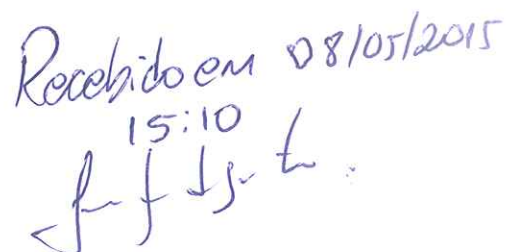 Recebido em 08/05/2015
15:10